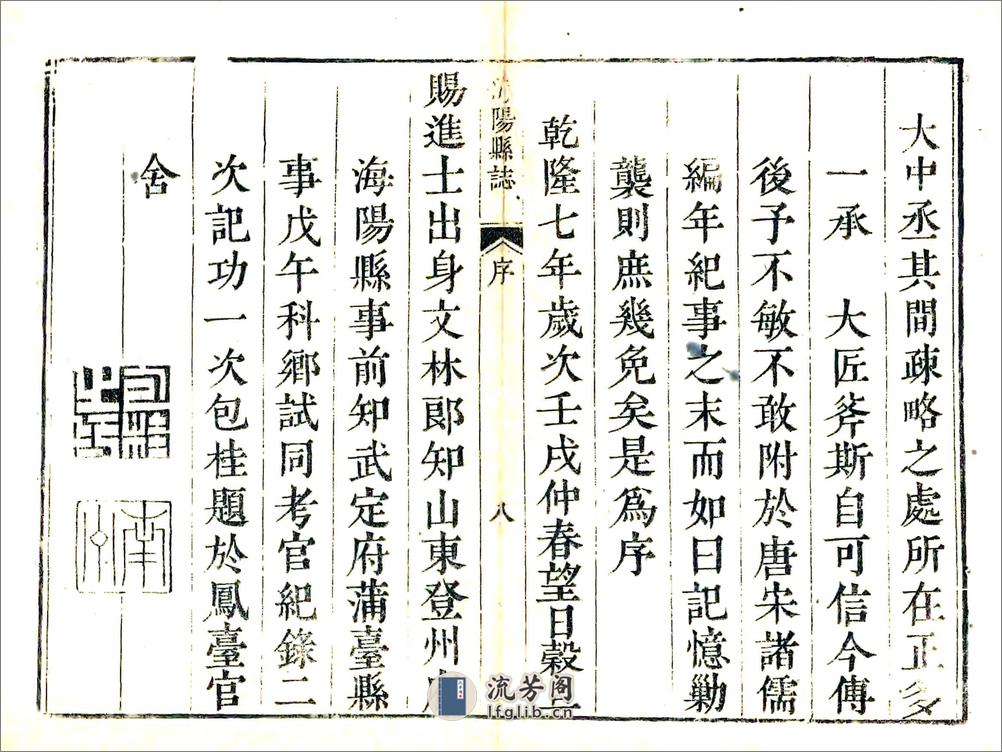 大中丞其間疎略之處所在正多
一承　大匠斧斯自可信今傳
後予不敏不敢附於唐宋諸儒
編年紀事之末而如日記憶勦
襲則庶幾免矣是爲序
乾隆七年歲次壬戌仲春望日穀旦
海陽縣誌
序
八
賜進士出身文林郎知山東登州府
海陽縣事前知武定府蒲臺縣
事戊午科鄉試同考官紀錄二
次記功一次包桂題於鳳臺官
舍
流芳阁
lfglib.com